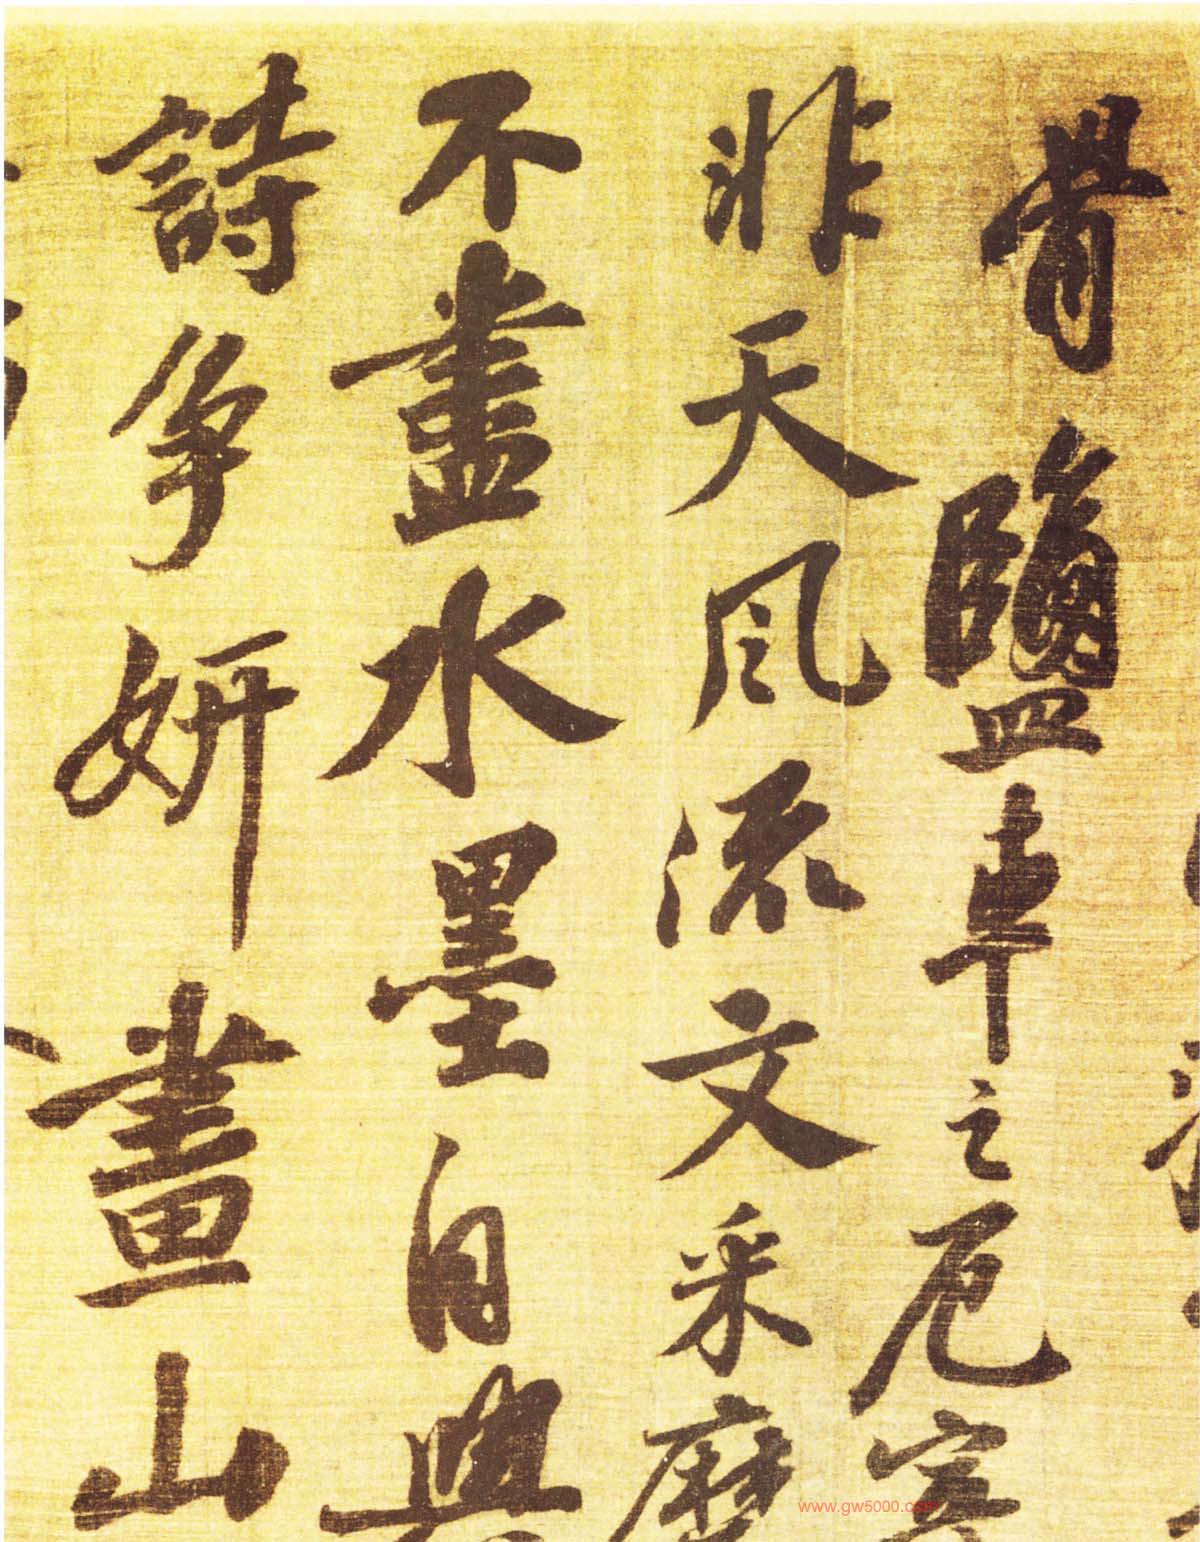 骨鹽車之厄寔
非天風流文采磨
不盡水墨自與
詩争妍畫山
www.gw5000.com